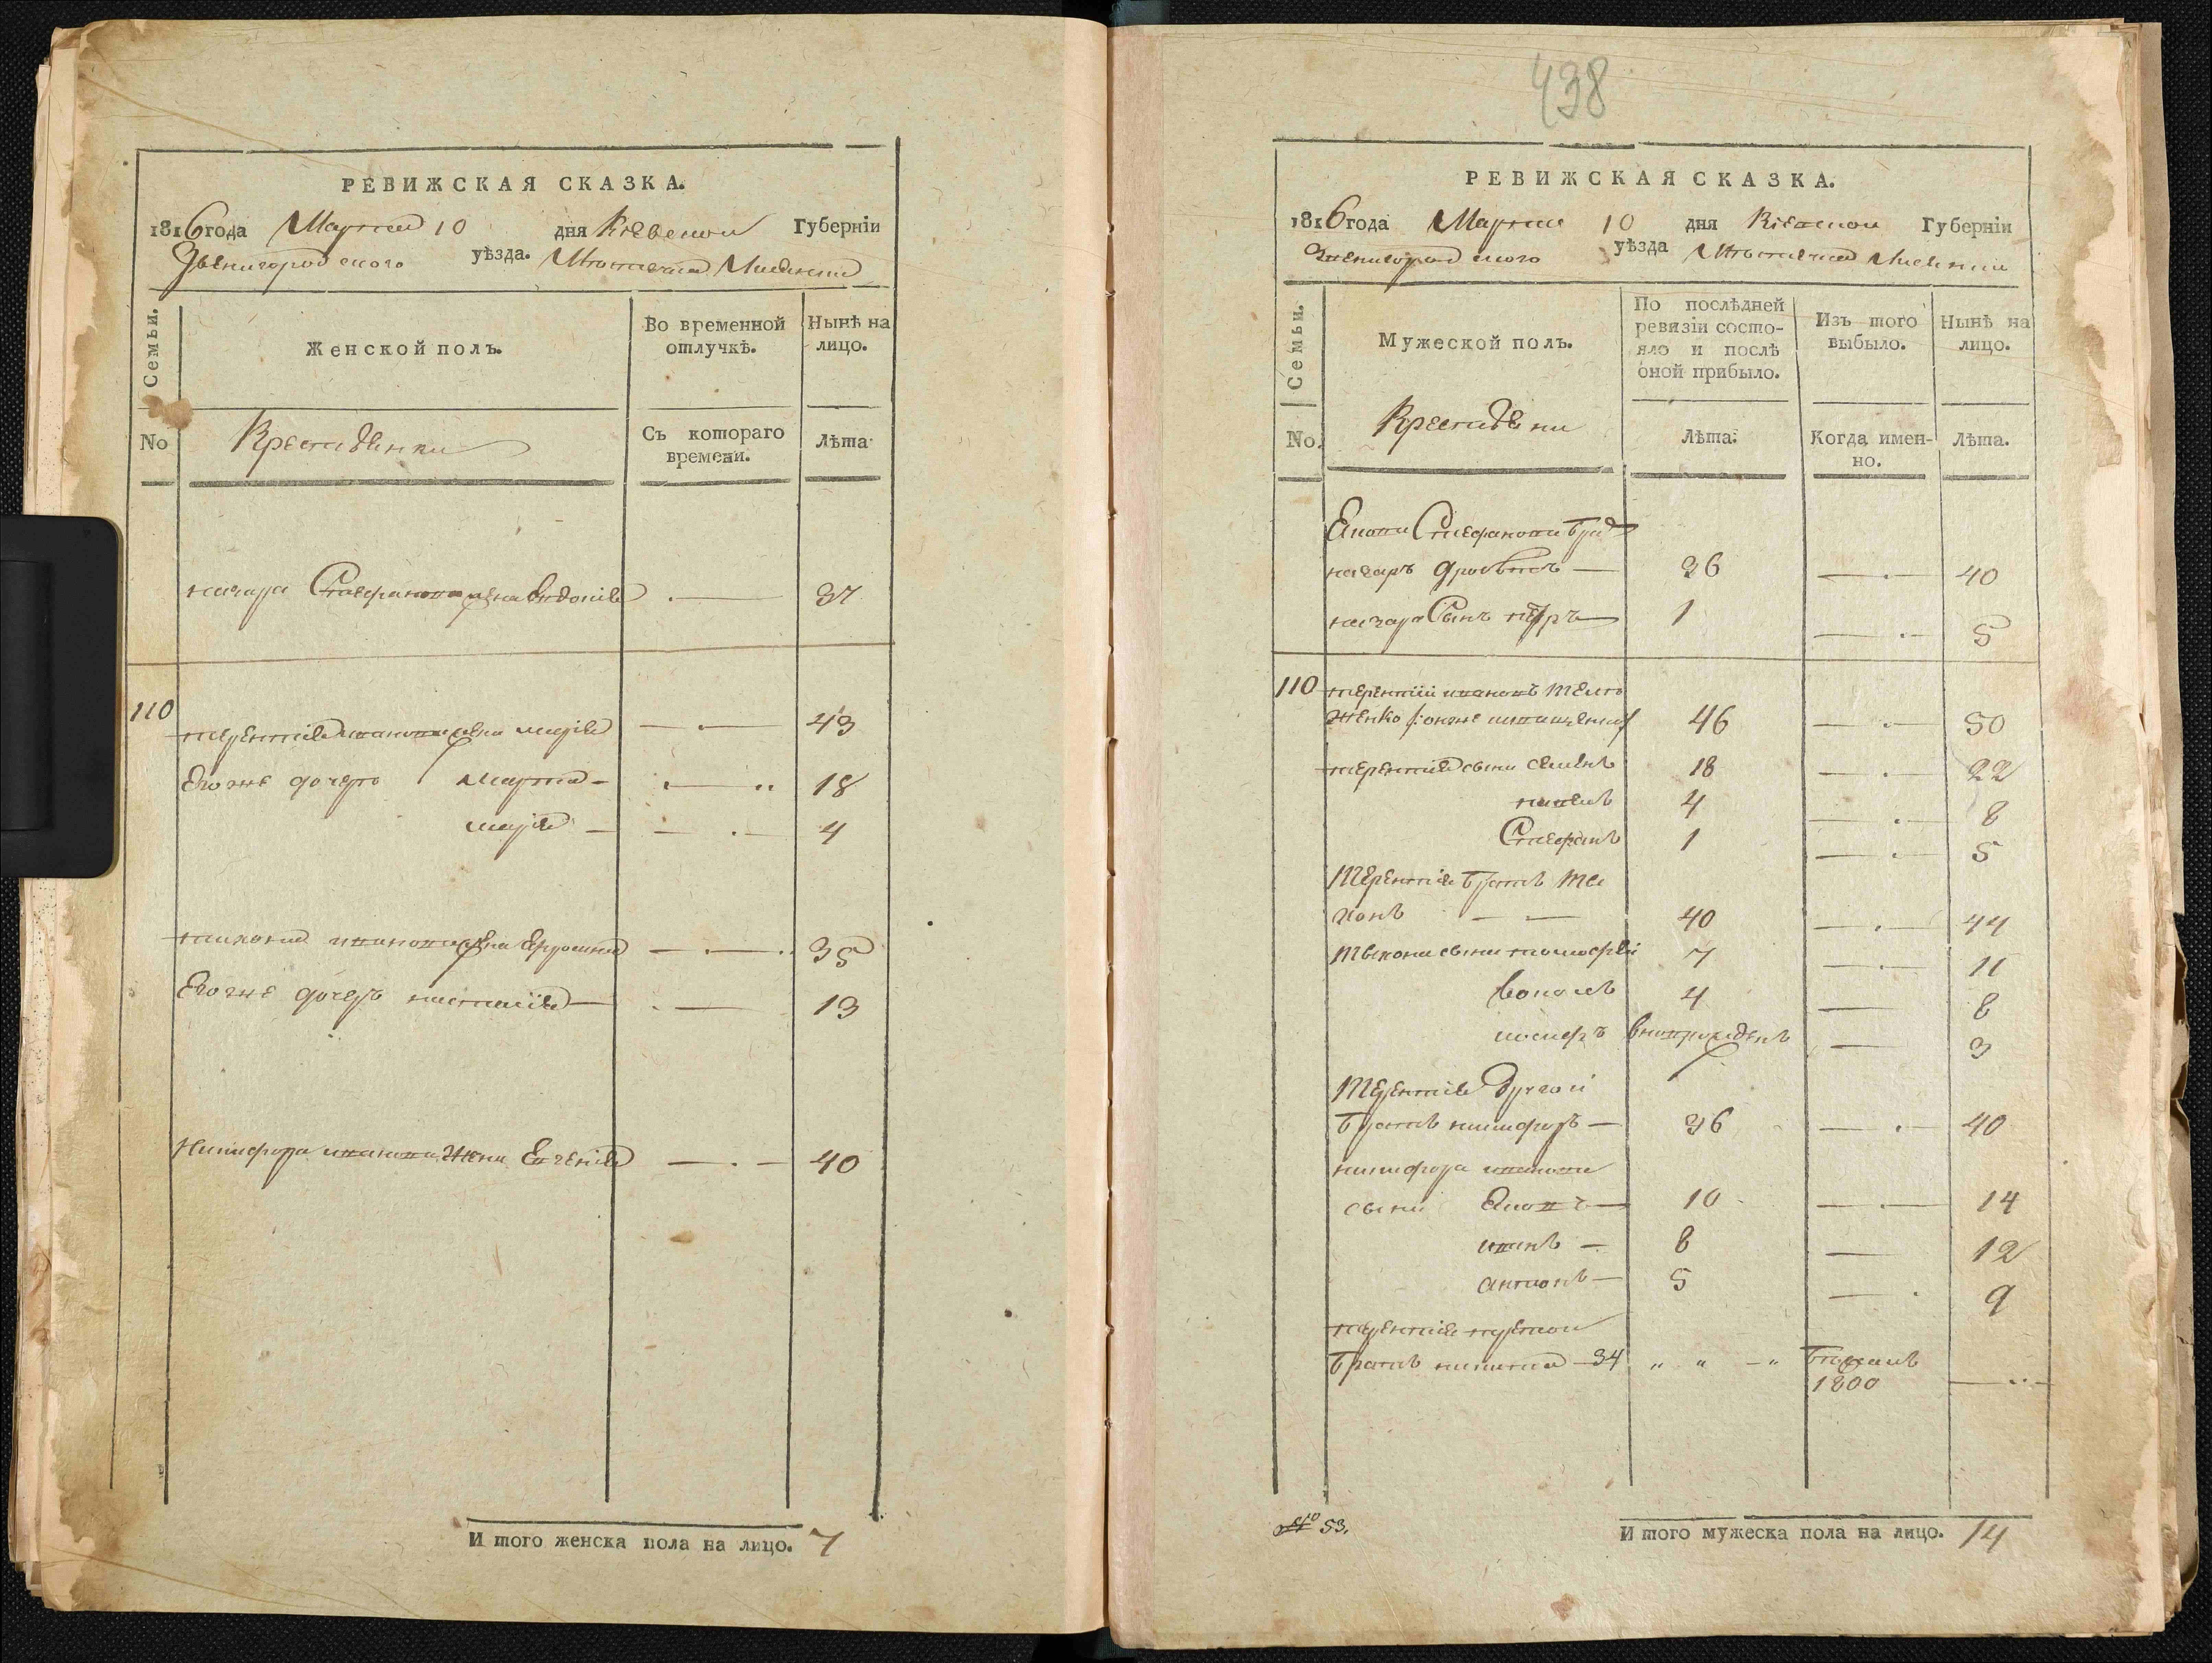 РЕВИЖСКАЯ СКАЗКА.
1816 года Марта 10 дня Киевской Губерніи
Звенигородского уѣзда.
Семьи.
Женской полъ.
Во временной отлучкѣ.
Нынѣ на лицо.
No
Крестьянки
Съ котораго времени.
Лѣта
назара Стефанова жена Евдокія 37
110
терентія иванова жена марія 43
Его же дочери Марта 18
марія 4
тихона иванова жена Ефросинія 35
Его же дочерь настасія 13
Никифора иванова жена Евгенія 40
И того женска пола на лицо. 7
438
РЕВИЖСКАЯ СКАЗКА.
1816 года Марта 10 дня Киевской Губерніи
Звенигородского уѣзда
Семьи.
Мужеской полъ.
По послѣдней ревизіи состояло и послѣ оной прибыло.
Изъ того выбыло.
Нынѣ на лицо.
No.
Крестьяни
Лѣта.
Когда именно.
Лѣта.
Стефанова братъ
назаръ 36 40
назара Сынъ петръ 1 5
110 терентій ивановъ
46 50
терентія сыни семенъ 18 22
павелъ 4 8
Стефанъ 1 5
Терентія братъ Ти
хонъ 40 44
Тихона сыни тимофѣй 7 11
4 8
иосифъ вновърожденъ 3
Терентія Другой
братъ никифоръ 36 40
никифора иванова
сыни Яковъ 10 14
иванъ 8 12
антонъ 5 9
терентія третой
братъ никита 34 " " "
1800
53.
И того мужеска пола на лицо. 14